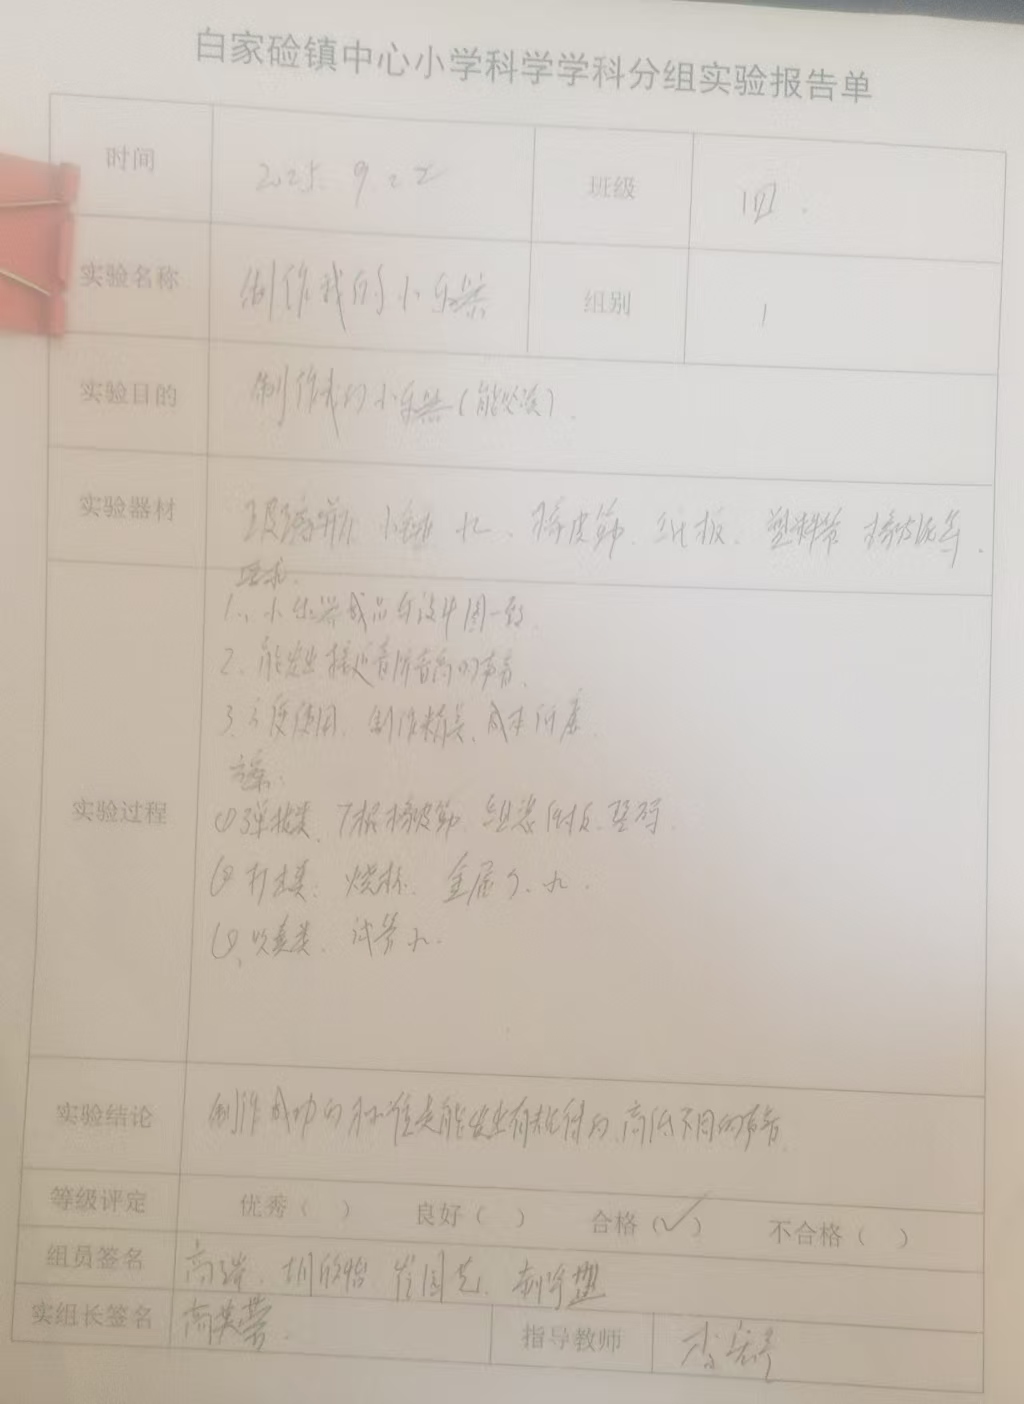 白家硷镇中心小学科学学科分组实验报告单
时间 2025.9.22 班级 四.
实验名称 制作我的小乐器 组别 1
实验目的 制作我的小乐器(能演奏).
实验器材 玻璃瓶、小锤 水、橡皮筋、纸板、塑料等
要求:
1、小乐器成品与设计图一致.
2、能发出 高 的声音.
3、方便使用、制作精美、成本低廉.
方案:
实验过程
①弹拨类、7根橡皮筋、
②打击类、烧杯、金属勺、水.
③、吹奏类、试管水.
实验结论 制作成功的标准是能发出有规律的、高低不同的声音.
等级评定 优秀( ) 良好( ) 合格(✓) 不合格( )
组员签名 高 、胡欣怡
实组长签名 高英 指导教师 李